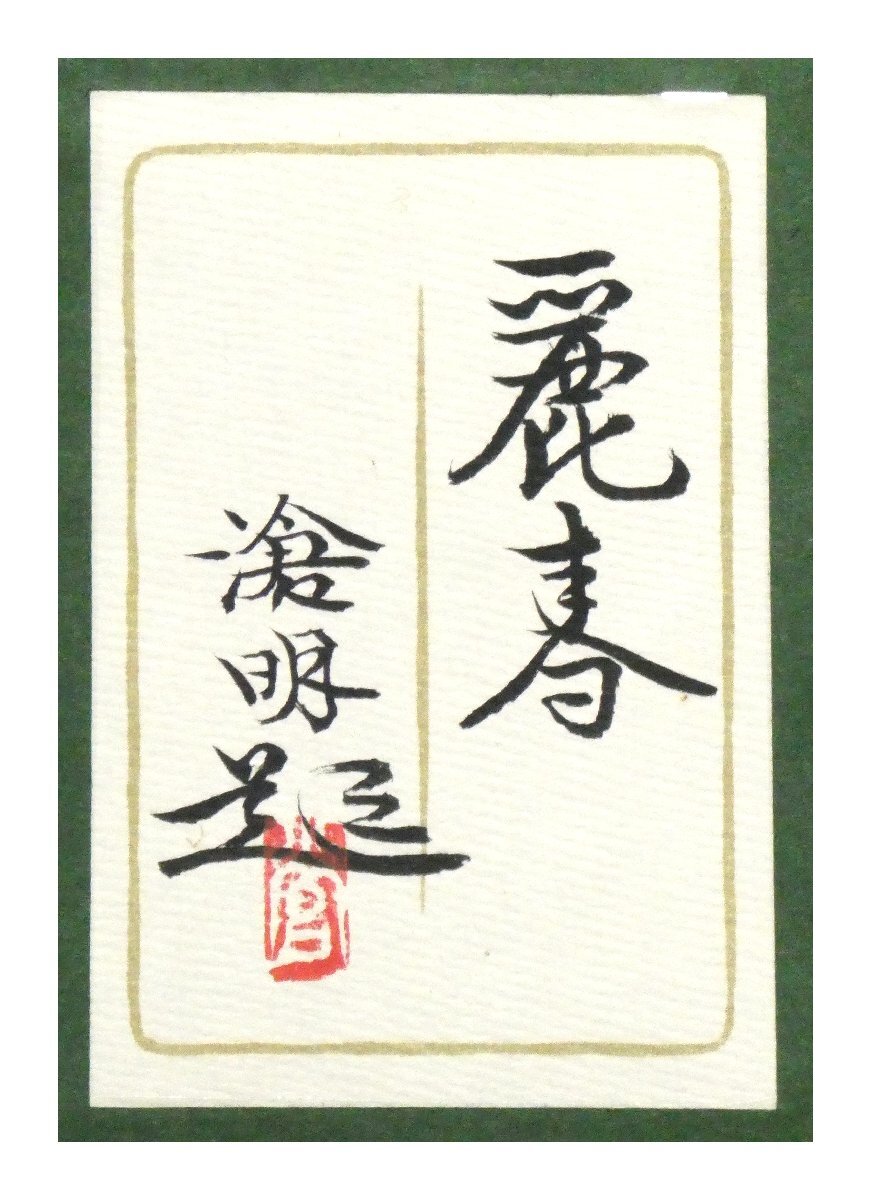 麗春
滄明題